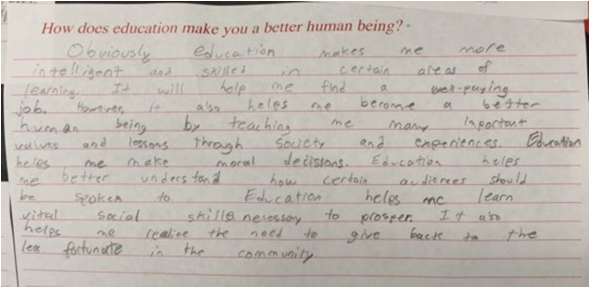 How does education make you a better human being?
Obviously education makes me more
intelligent and skilled in certain areas of
learning. It will help me find a well-paying
job. However, it also helps me become a better
human being by teaching me many important
values and lessons through society and experiences. Education
helps me make moral decisions. Education helps
me better understand how certain audiences should
be spoken to. Education helps me learn
vital social skills necessary to prosper. It also
helps me realize the need to give back to the
less fortunate in the community.